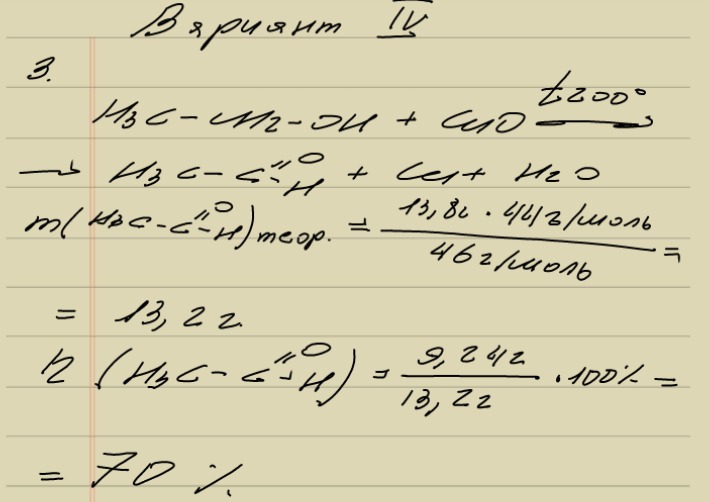 Вариант IV
3.
H3C-CH2-OH + CuO t200°→
→ H3C-C=O-H + Cu + H2O
m(H3C-C=O-H)теор. = 13,8г · 44г/моль / 46г/моль =
= 13,2 г.
η (H3C-C=O-H) = 9,24г / 13,2г · 100% =
= 70 %